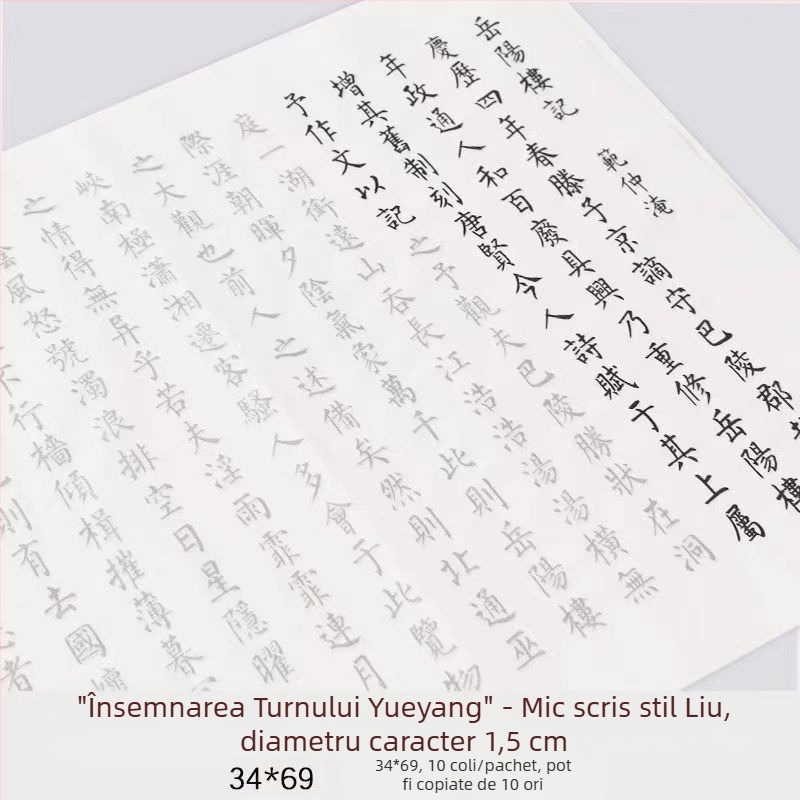 岳陽樓記 範仲淹
慶歷四年春滕子京謫守巴陵郡越
年政通人和百廢具興乃重修岳陽樓
增其舊制刻唐賢今人詩賦于其上屬
予作文以記之予觀夫巴陵勝狀在洞
庭一湖銜遠山吞長江浩浩湯湯橫無
際涯朝暉夕陰氣象萬千此則岳陽樓
之大觀也前人之述備矣然則北通巫
峽南極瀟湘遷客騷人多會于此覽物
之情得無異乎若夫淫雨霏霏連月
陰風怒號濁浪排空日星隱曜
行檣傾楫摧薄暮
則有去國懷
者
"Însemnarea Turnului Yueyang" - Mic scris stil Liu,
diametru caracter 1,5 cm
34*69
34*69, 10 coli/pachet, pot
fi copiate de 10 ori